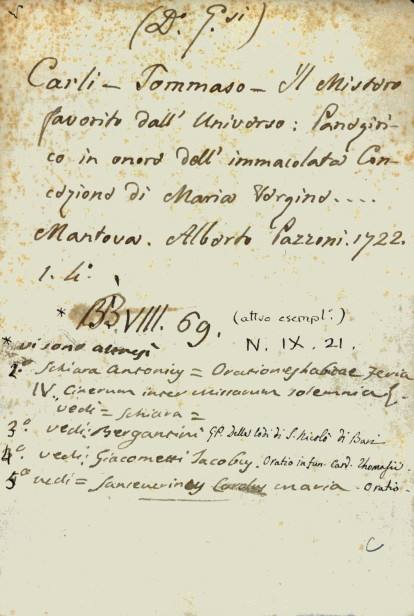 (D. G.si)
Carli - Tommaso - Il Mistero
favorito dall' Universo: Panegiri-
co in onore dell' immacolata Con-
cezione di Maria Vergine....
Mantova. Alberto Pazzoni. 1722.
1. 4°.
* BB.VIII. 69. (altro esempl.:)
N. IX. 21.
* vi sono annessi
2° Schiara Antonius = Orationes habitae Feria
IV. Cinerum inter Missarum solemnia
vedi = Schiara =
3° vedi Bergantini G.P. Delle lodi di S. Nicolò di Bari
4° vedi: Giacometti Jacobus. Oratio in fun. Card. Thomasii.
5° vedi = Sanseverinus maria - Oratio -